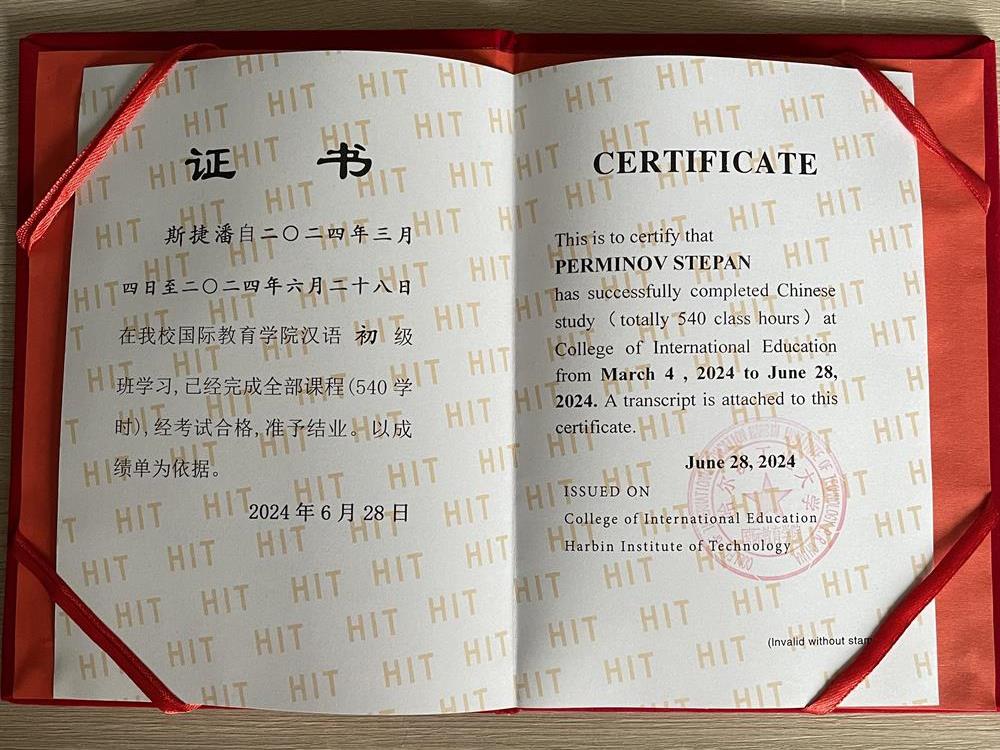 证 书
斯捷潘自二〇二四年三月
四日至二〇二四年六月二十八日
在我校国际教育学院汉语 初 级
班学习,已经完成全部课程(540 学
时),经考试合格,准予结业。以成
绩单为依据。
2024 年 6 月 28 日
CERTIFICATE
This is to certify that
PERMINOV STEPAN
has successfully completed Chinese
study （totally 540 class hours）at
College of International Education
from March 4 , 2024 to June 28,
2024. A transcript is attached to this
certificate.
June 28, 2024
ISSUED ON
College of International Education
Harbin Institute of Technology
(Invalid without
HIT